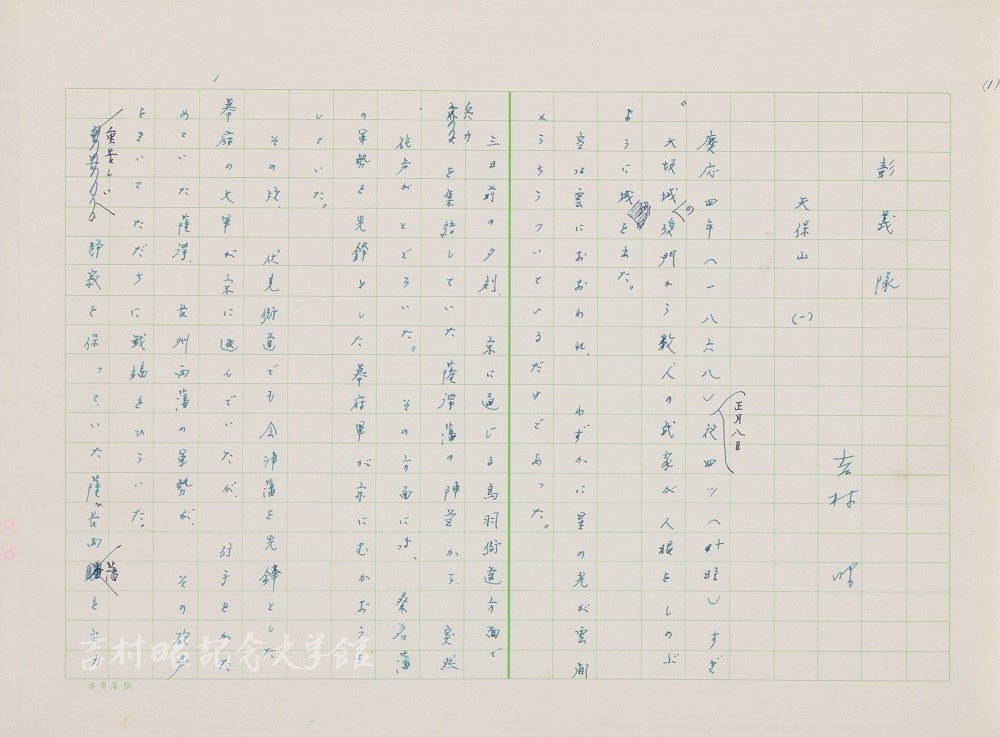 (1)
彰義隊
吉村 昭
天保山 (一)
慶応四年(一八六八)正月八日夜四ツ(十時)すぎ
大坂城の後門から数人の武家が人眼をしのぶ
ように城を出た。
空は雲におおわれ、わずかに星の光が雲間
からもれているだけであった。
三日前の夕刻、京に通じる鳥羽街道方面で
兵力を集結していた薩摩藩の陣営から突然
砲声がとどろいた。その方面には、桑名藩
の軍勢を先鋒とした幕府軍が京にむかおうと
していた。
その頃、伏見街道でも会津藩を先鋒とした
幕府の大軍が京に進んでいたが、行手をかた
めていた薩摩、長州両藩の軍勢が、その砲声
をきいてただちに戦端をひらいた。
静寂を保っていた薩長両藩
吉村昭記念文学館